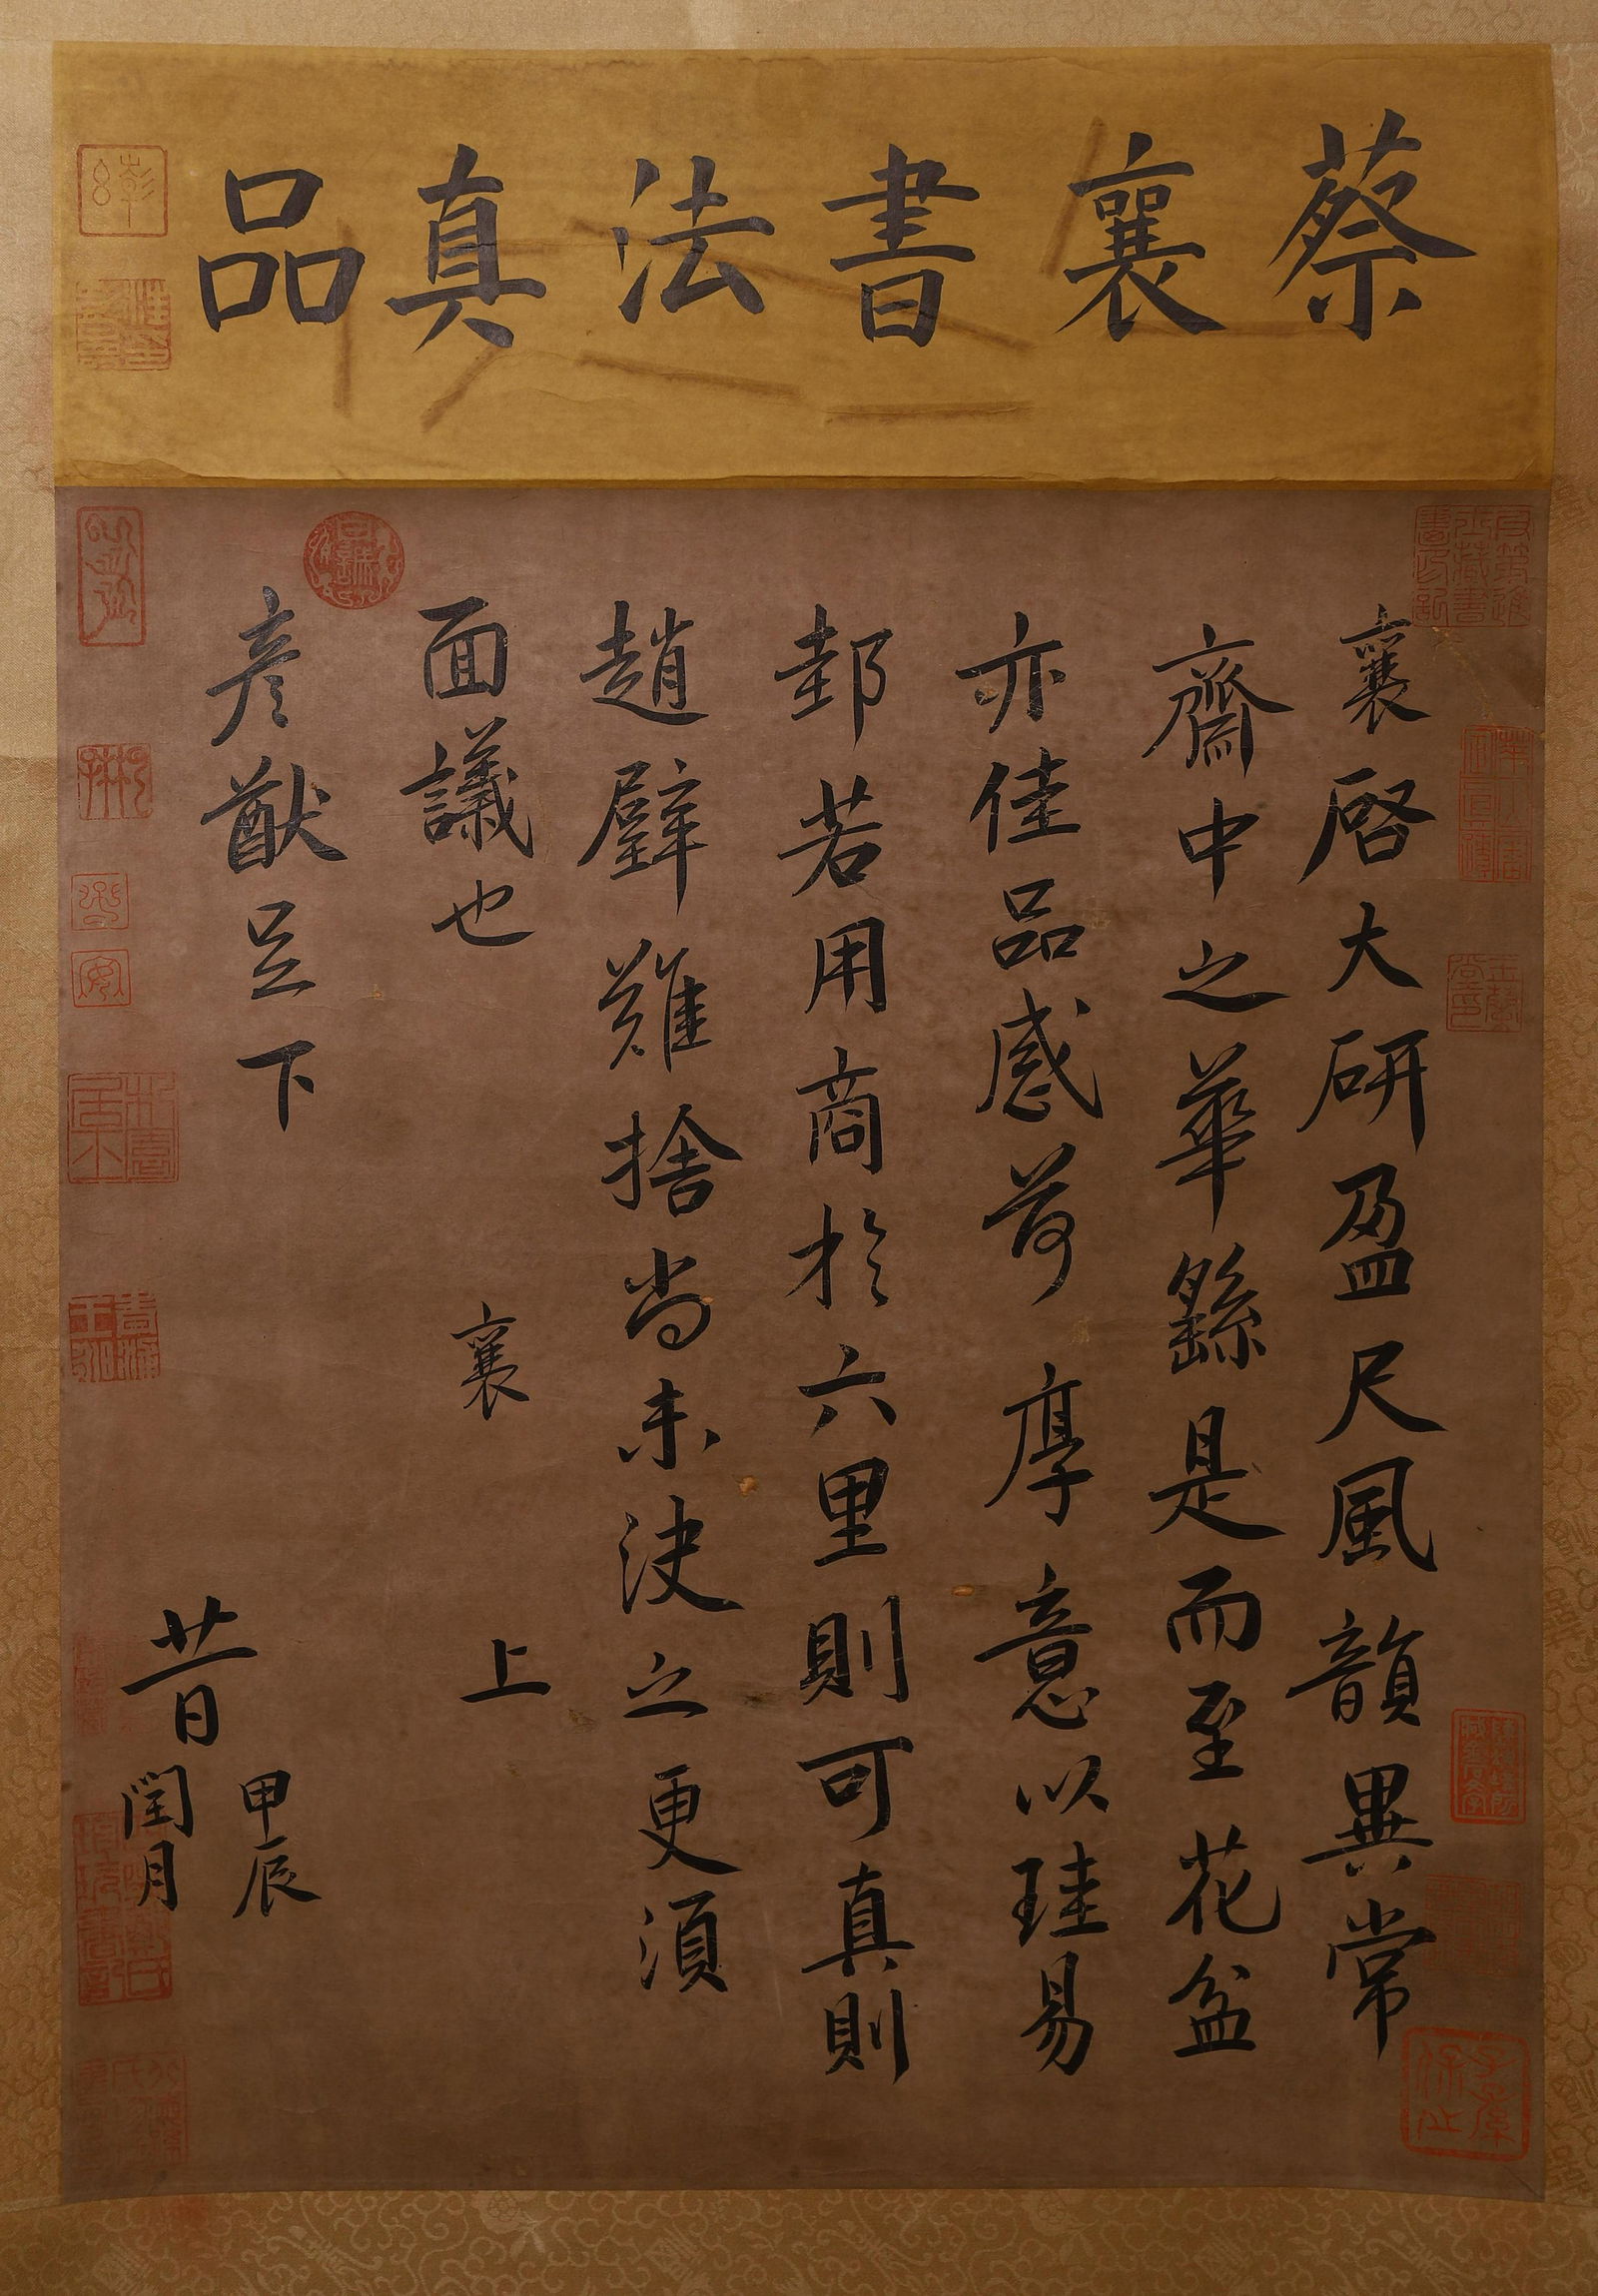 蔡襄書法真品
襄啓大研盈尺風韻異常
齋中之華繇是而至花盆
亦佳品感荷厚意以珪易
邽若用商於六里則可真則
趙璧難捨尚未決之更須
面議也襄上
彥猷足下
廿一日甲辰
閏月
子孫保之